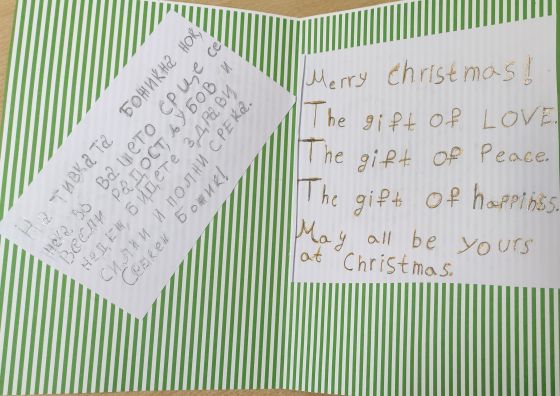 НА ТИВКАТА БОЖИКНА НОЌ
НЕКА ВО ВАШЕТО СРЦЕ СЕ
ВСЕЛИ РАДОСТ, ЉУБОВ И
НАДЕЖ, БИДЕТЕ ЗДРАВИ
СИЛНИ И ПОЛНИ СРЕЌА.
СРЕЌЕН БОЖИЌ!
Merry Christmas!
The gift of LOVE.
The gift of Peace.
The gift of happinss.
May all be yours
at Christmas.